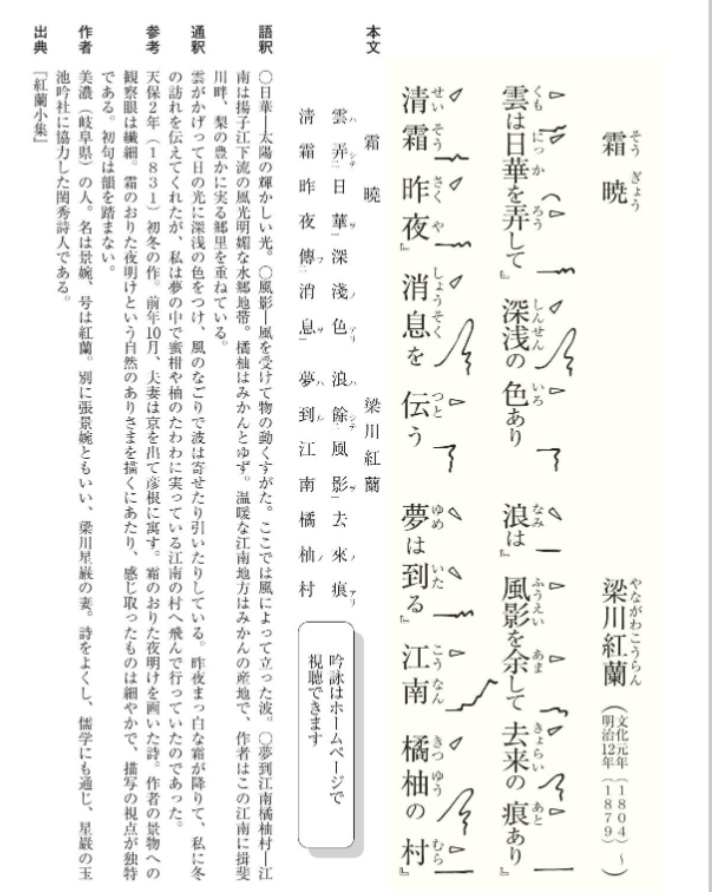 そう ぎょう
霜 暁
やながわこうらん
梁川紅蘭
(文化元年(1804)〜
明治12年(1879))
くも にっ か ろう しんせん いろ なみ ふうえい あま きょらい あと
雲は日華を弄して』 深浅の色あり 浪は』 風影を余して 去来の痕あり』
せい そう さく や しょうそく つと ゆめ いた こう なん きつ ゆう むら
清霜 昨夜』 消息を 伝う 夢は 到る』 江南 橘柚の 村』
本文
霜 曉
梁川紅蘭
雲ハ弄シテ二日華ヲ一深淺ノ色アリ 浪ハ餘シテ二風影ヲ一去來ノ痕アリ
清霜昨夜傳フ二消息ヲ一 夢ハ到ル江南橘柚ノ村
吟詠はホームページで
視聴できます
語釈 〇日華―太陽の輝かしい光。〇風影―風を受けて物の動くすがた。ここでは風によって立った波。〇夢到江南橘柚村―江
南は揚子江下流の風光明媚な水郷地帯。橘柚はみかんとゆず。温暖な江南地方はみかんの産地で、作者はこの江南に揖斐
川畔、梨の豊かに実る郷里を重ねている。
通釈 雲がかげって日の光に深浅の色をつけ、風のなごりで波は寄せたり引いたりしている。昨夜まっ白な霜が降りて、私に冬
の訪れを伝えてくれたが、私は夢の中で蜜柑や柚のたわわに実っている江南の村へ飛んで行っていたのであった。
参考 天保2年(1831)初冬の作。前年10月、夫妻は京を出て彦根に寓す。霜のおりた夜明けを画いた詩。作者の景物への
観察眼は繊細。霜のおりた夜明けという自然のありさまを描くにあたり、感じ取ったものは細やかで、描写の視点が独特
である。初句は韻を踏まない。
作者 美濃(岐阜県)の人。名は景婉、号は紅蘭。別に張景婉ともいい、梁川星巌の妻。詩をよくし、儒学にも通じ、星巌の玉
池吟社に協力した閨秀詩人である。
出典 『紅蘭小集』